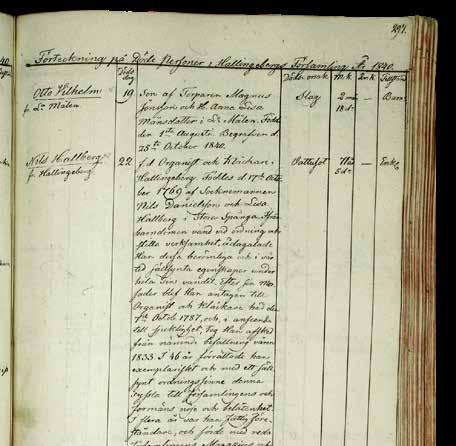 297.
Förteckning på Döde Personer i Hallingebergs Församling År 1840.
Döds dag
Döds orsak
M.k.
Qv.k.
Otto Vilhelm
fr. L:a Målen
19
Son af Torparen Magnus
Jonsson och H. Anna Lisa
Månsdotter i L:a Målen. Född
den 1:sta Augusti. Begrafven d.
25:th October 1840.
Slag
2 m:
18 d:
—
Barn
Nils Hallberg
fr. Hallingeberg
22
f.d. Organist och Klåckare i
Hallingeberg. Föddes d. 17:th Octo-
ber 1769 af Socknemannen
Nils Danielsson och Lisa
Hallberg i Stora Spånga. Från
barndomen vand vid ordning och
stilla verksamhet, ådagalade
Han dessa berömliga och i vår
tid sällsynta egenskaper under
hela sin vandel. Efter sin Mo-
fader blef Han antagen till
Organist och Klåckare här den
7:th Octob. 1787, och, i anseende
till sjuklighet, tog Han afsked
från nämnde befattning våren
1833. I 46 år förrättade han
exemplariskt och med ett säll-
synt ordningssinne denna
syssla till församlingens och
förmäns nöje och belåtenhet.
I flera år var han
och förde med
Magazins
Vattusot
5 d:
—
Enkl.